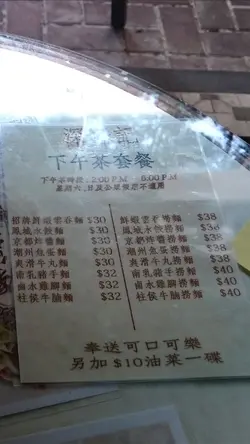 記
下午茶套餐
下午茶時段:2:00 P.M - 6:00 P.M
星期六,日及公眾假期不適用
招牌鮮蝦雲吞麵 $30
鳳城水餃麵 $30
京都炸醬麵 $30
潮州魚蛋麵 $30
爽滑牛丸麵 $30
南乳豬手麵 $32
鹵水雞腳麵 $32
柱侯牛腩麵 $32
鮮蝦雲吞撈麵 $38
鳳城水餃撈麵 $38
京都炸醬撈麵 $38
潮州魚蛋撈麵 $38
爽滑牛丸撈麵 $38
南乳豬手撈麵 $40
鹵水雞腳撈麵 $40
柱侯牛腩撈麵 $40
奉送可口可樂
另加 $10油菜一碟